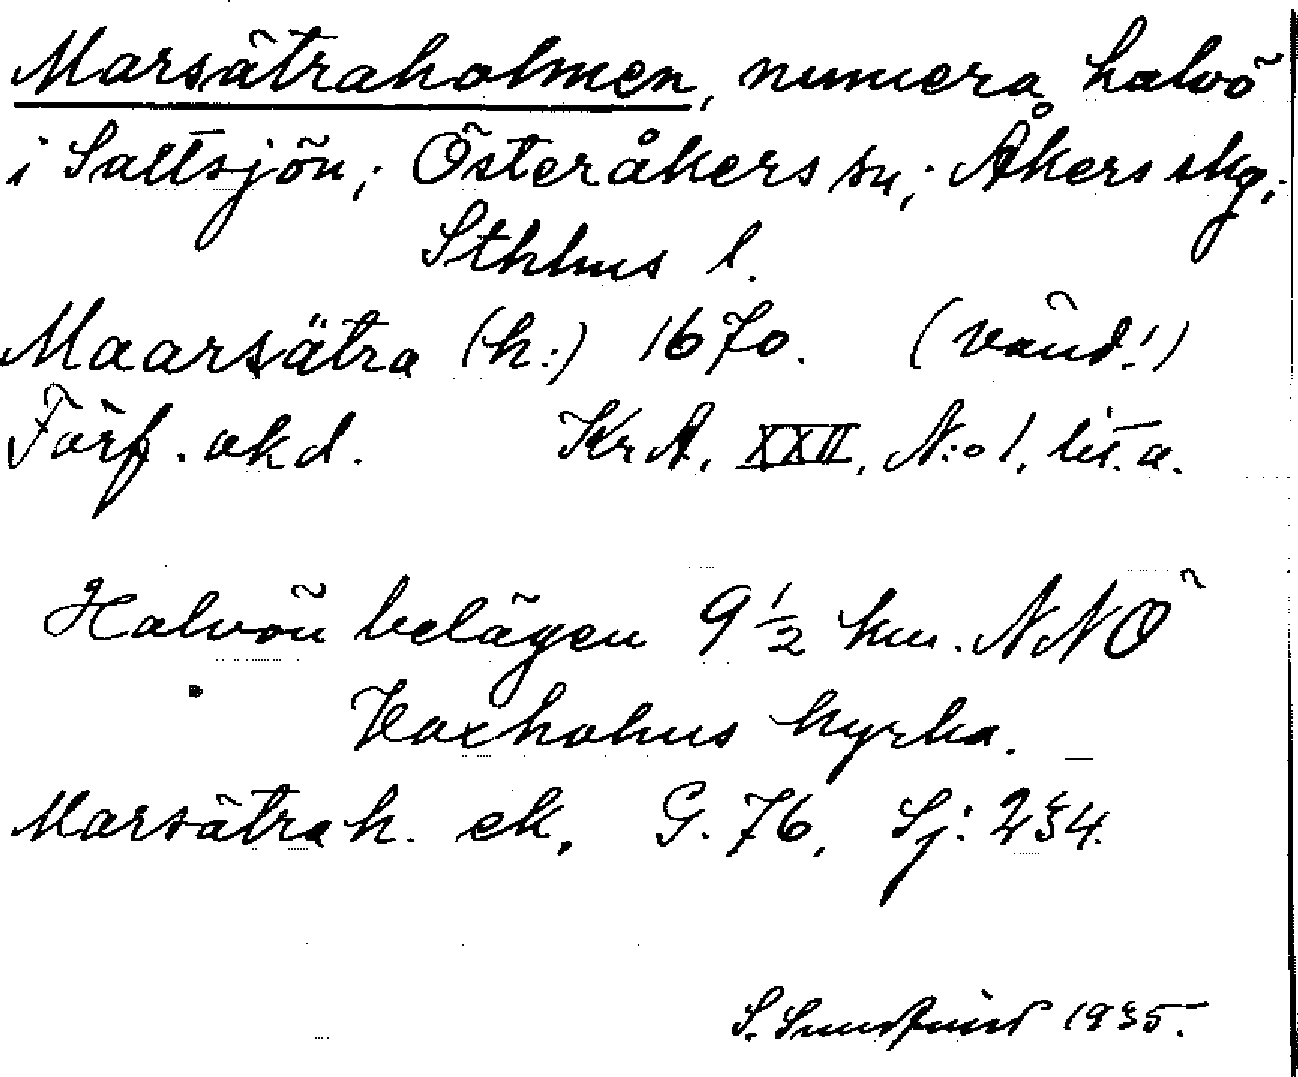 Marsätraholmen, numera halvö
i Saltsjön; Österåkers sn; Åkers skg;
Sthlms l.
Maarsätra (h:) 1670. (vänd!)
Förf. okd. KrA, XXII, N:o 1, lit. a.
Halvön belägen 9 1/2 km. NNÖ
Vaxholms kyrka.
Marsätrah. ek. G. 76, Sj: 234.
S. 1935.